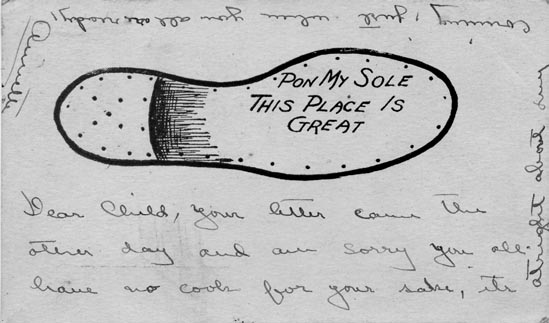 PON MY SOLE
THIS PLACE IS
GREAT
Dear Child, your letter came the
other day and am sorry you all
have no cook for your sake, its
alright about my
comming, just when you all are ready!